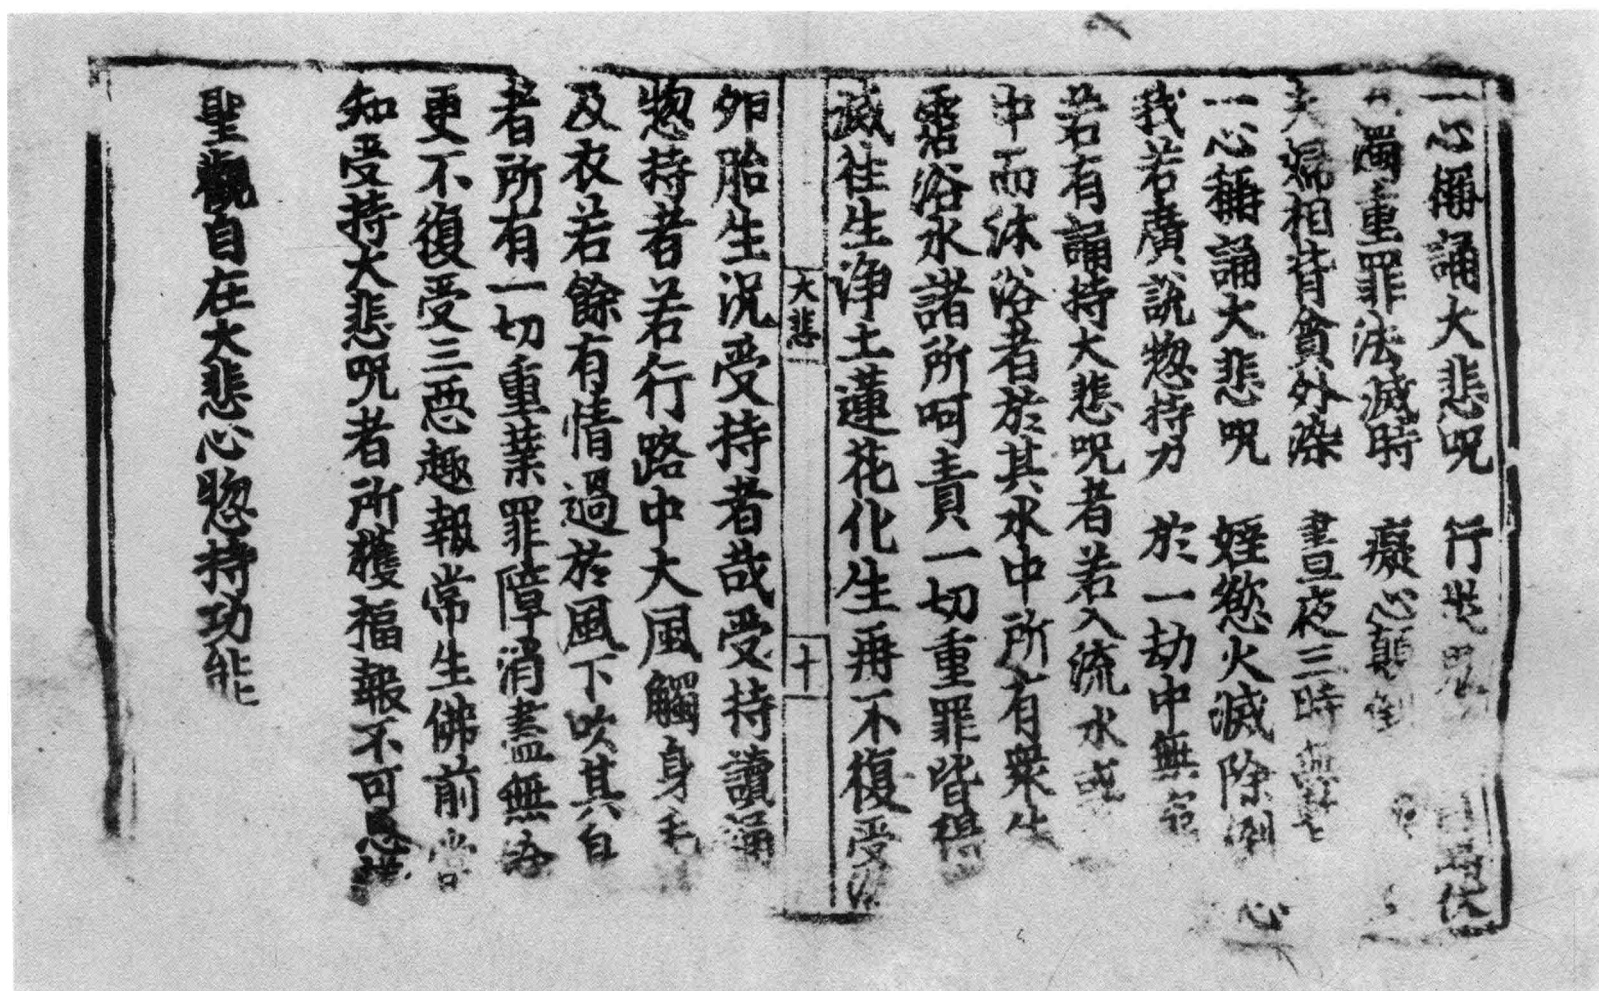 一心稱誦大悲呪 行
濁重罪法滅時 癡心顛倒
夫婦相背貪外染 晝夜三時
一心稱誦大悲呪 婬慾火滅除 心
我若廣說惣持力 於一劫中無
若有誦持大悲呪者若入流水或
中而沐浴者於其水中所有衆生
霑浴水諸所呵責一切重罪皆得
滅往生淨土蓮花化生再不復受
大悲 十
卵胎生況受持者哉受持讀誦
惣持者若行路中大風觸身毛
及衣若餘有情過於風下吹其自
者所有一切重業罪障消盡無
更不復受三惡趣報常生佛前當
知受持大悲呪者所獲福報不可
聖觀自在大悲心惣持功能